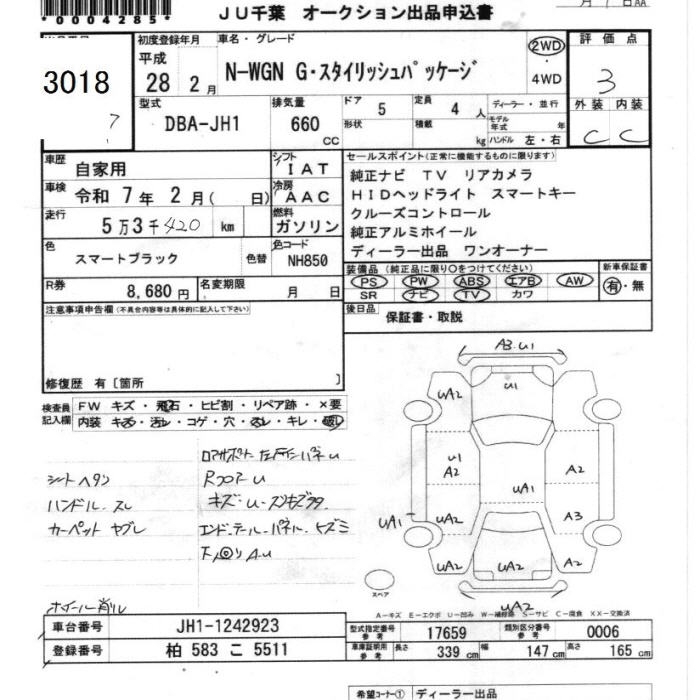 *0004285*
JU千葉 オークション出品申込書
月 日AA
3018
7
初度登録年月
平成
28 2月
車名・グレード
N-WGN G・スタイリッシュパッケージ
2WD
・
4WD
評価点
3
型式
DBA-JH1
排気量
660
cc
ドア 5
定員 4 人
形状
積載 kg
ディーラー・並行
モデル年式 年
ハンドル 左・右
外装 内装
C C
車歴
自家用
シフト
IAT
車検
令和 7年 2月( 日)
冷房
AAC
走行
5万3千420 km
燃料
ガソリン
色
スマートブラック
色替
色コード
NH850
R券
8,680円
名変期限
月 日
セールスポイント(正常に機能するものに限ります)
純正ナビ TV リアカメラ
HIDヘッドライト スマートキー
クルーズコントロール
純正アルミホイール
ディーラー出品 ワンオーナー
装備品(純正品に限り○をつけてください)
PS PW ABS エアB AW
SR ナビ TV カワ
新車保証書
有・無
後日品
保証書・取説
注意事項申告欄(不具合内容等は具体的に記入して下さい)
修復歴 有[箇所 ]
検査員記入欄
FW キズ・飛石・ヒビ割・リペア跡・×要
内装 キズ・汚レ・コゲ・穴・スレ・キレ・破レ
シートヘタリ
ハンドル.スレ
カーペット ヤブレ
ホイール削レ
コアサポート
キズ・U
エンド.テール.パネル
A3.U1
UA2
U1
UA2
U1
A2
A2
UA1
UA1
UA2
A3
UA2
UA2
A2
UA2
スペア
A-キズ E-エクボ U-凹み W-補修跡 S-サビ C-腐食 XX-交換済
車台番号
JH1-1242923
型式指定番号
参考
17659
類別区分番号
参考
0006
登録番号
柏 583 こ 5511
車庫証明用
参考
長さ 339 cm
幅 147 cm
高さ 165 cm
希望コーナー① ディーラー出品